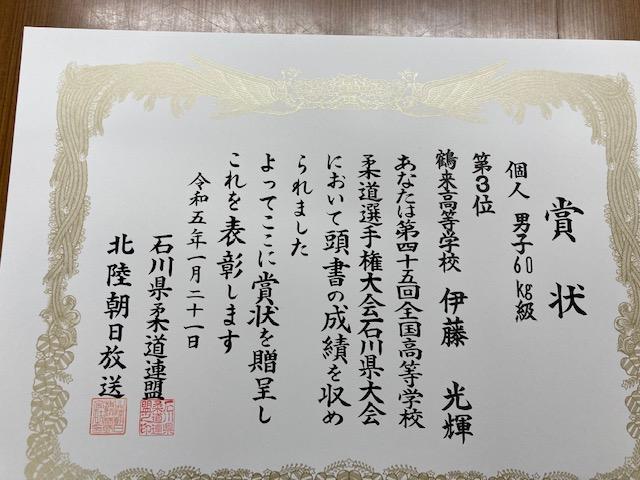 賞状
個人 男子60kg級
第3位
鶴来高等学校 伊藤 光輝
あなたは第四十五回全国高等学校
柔道選手権大会石川県大会
において頭書の成績を収め
られました
よってここに賞状を贈呈し
これを表彰します
令和五年一月二十一日
石川県柔道連盟
北陸朝日放送